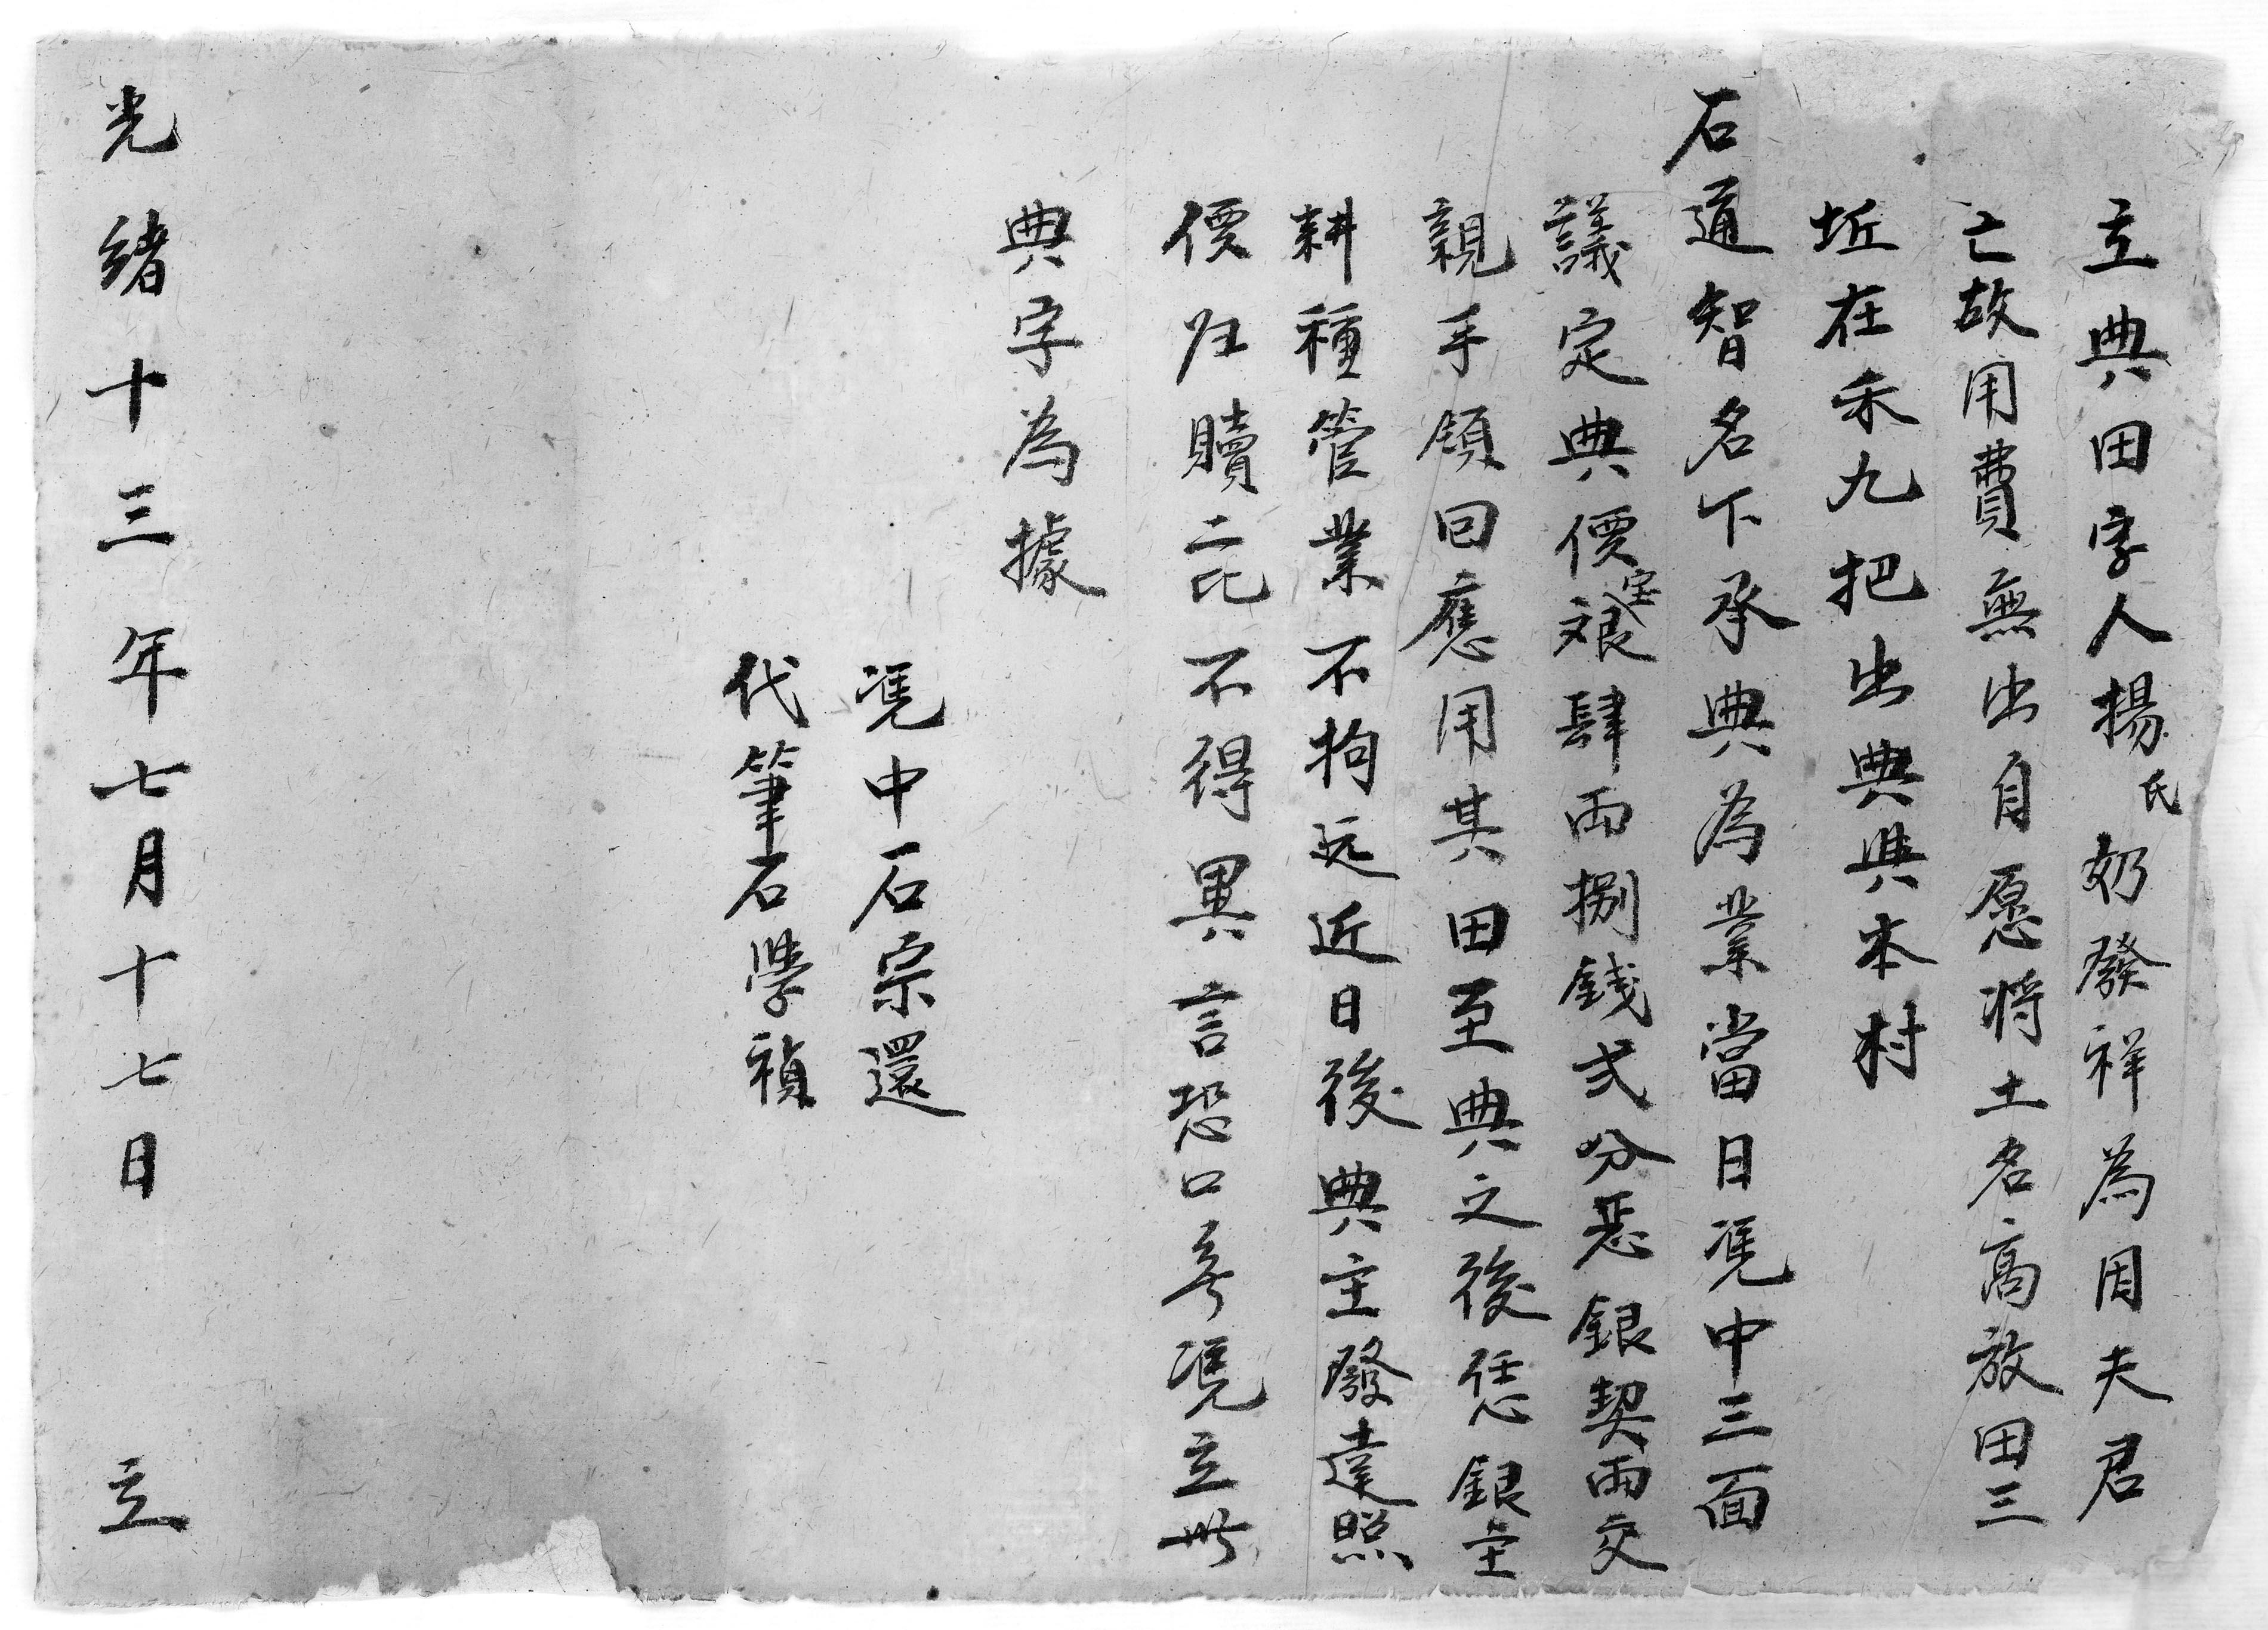 立典田字人楊氏奶發祥為因夫君
亡故用費無出自愿将土名高放田三
坵在禾九把出典與本村
石通智名下承典為業當日凴中三面
議定典價銀定肆両捌錢弍分恶銀契両交
親手領回應用其田至典之後恁銀主
耕種管業不拘远近日後典主發達照
價归贖二比不得異言恐口無凴立此
典字為據
凴中石宗還
代筆石學禎
光緒十三年七月十七日立